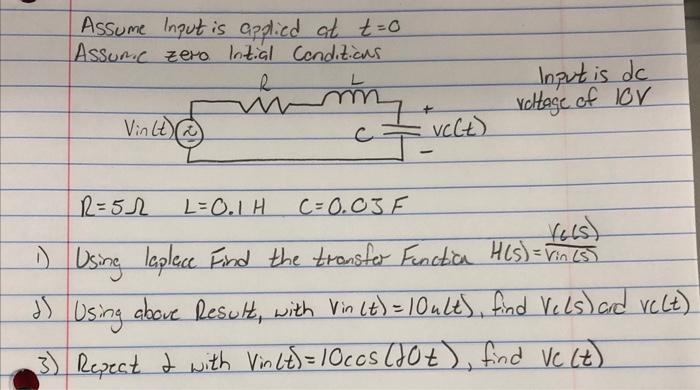 Assume Input is applied at t=0
Assume zero Intial Conditions
R L Input is dc
voltage of 10V
+
Vin(t) C vc(t)
-
R=5Ω L=0.1H C=0.03F
1) Using laplace Find the transfer Function H(s)=Vc(s)/Vin(s)
2) Using above Result, with Vin(t)=10u(t), find Vc(s) and vc(t)
3) Repeat 2 with Vin(t)=10cos(20t), find Vc(t)